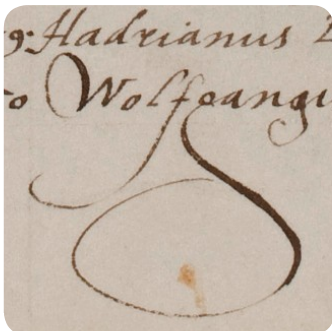 9. Hadrianus
Wolfgangu